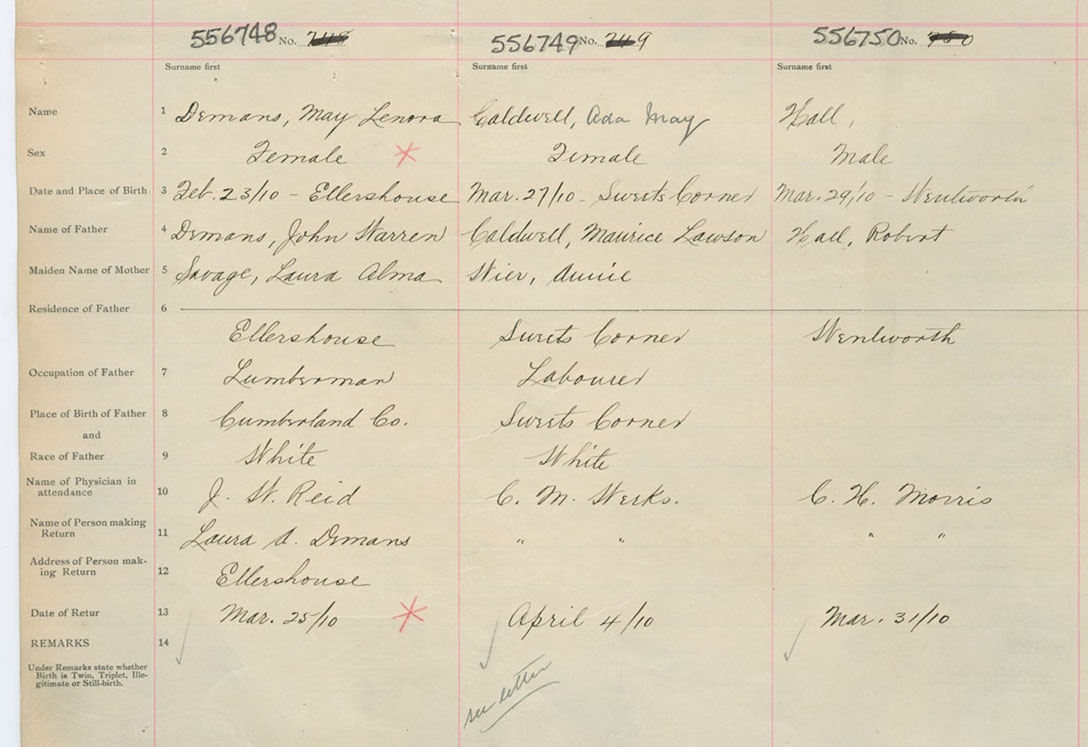 556748 No. 748 556749 No. 249 556750 No. 750
Surname first Surname first Surname first
Name 1 Demans, May Lenora Caldwell, Ada May Hall,
Sex 2 Female Female Male
Date and Place of Birth 3 Feb. 23/10 - Ellershouse Mar. 27/10 - Sweets Corner Mar. 29/10 - Wentworth
Name of Father 4 Demans, John Warren Caldwell, Maurice Lawson Hall, Robert
Maiden Name of Mother 5 Savage, Laura Alma Wier, Annie
Residence of Father 6
Ellershouse Sweets Corner Wentworth
Occupation of Father 7 Lumberman Labourer
Place of Birth of Father 8 Cumberland Co. Sweets Corner
and
Race of Father 9 White White
Name of Physician in
attendance 10 J. W. Reid C. M. C. H. Morris
Name of Person making
Return 11 Laura A. Demans " " " "
Address of Person mak-
ing Return 12 Ellershouse
Date of Retur 13 Mar. 25/10 April 4/10 Mar. 31/10
REMARKS 14
Under Remarks state whether
Birth is Twin, Triplet, Ille-
gitimate or Still-birth.
see letter